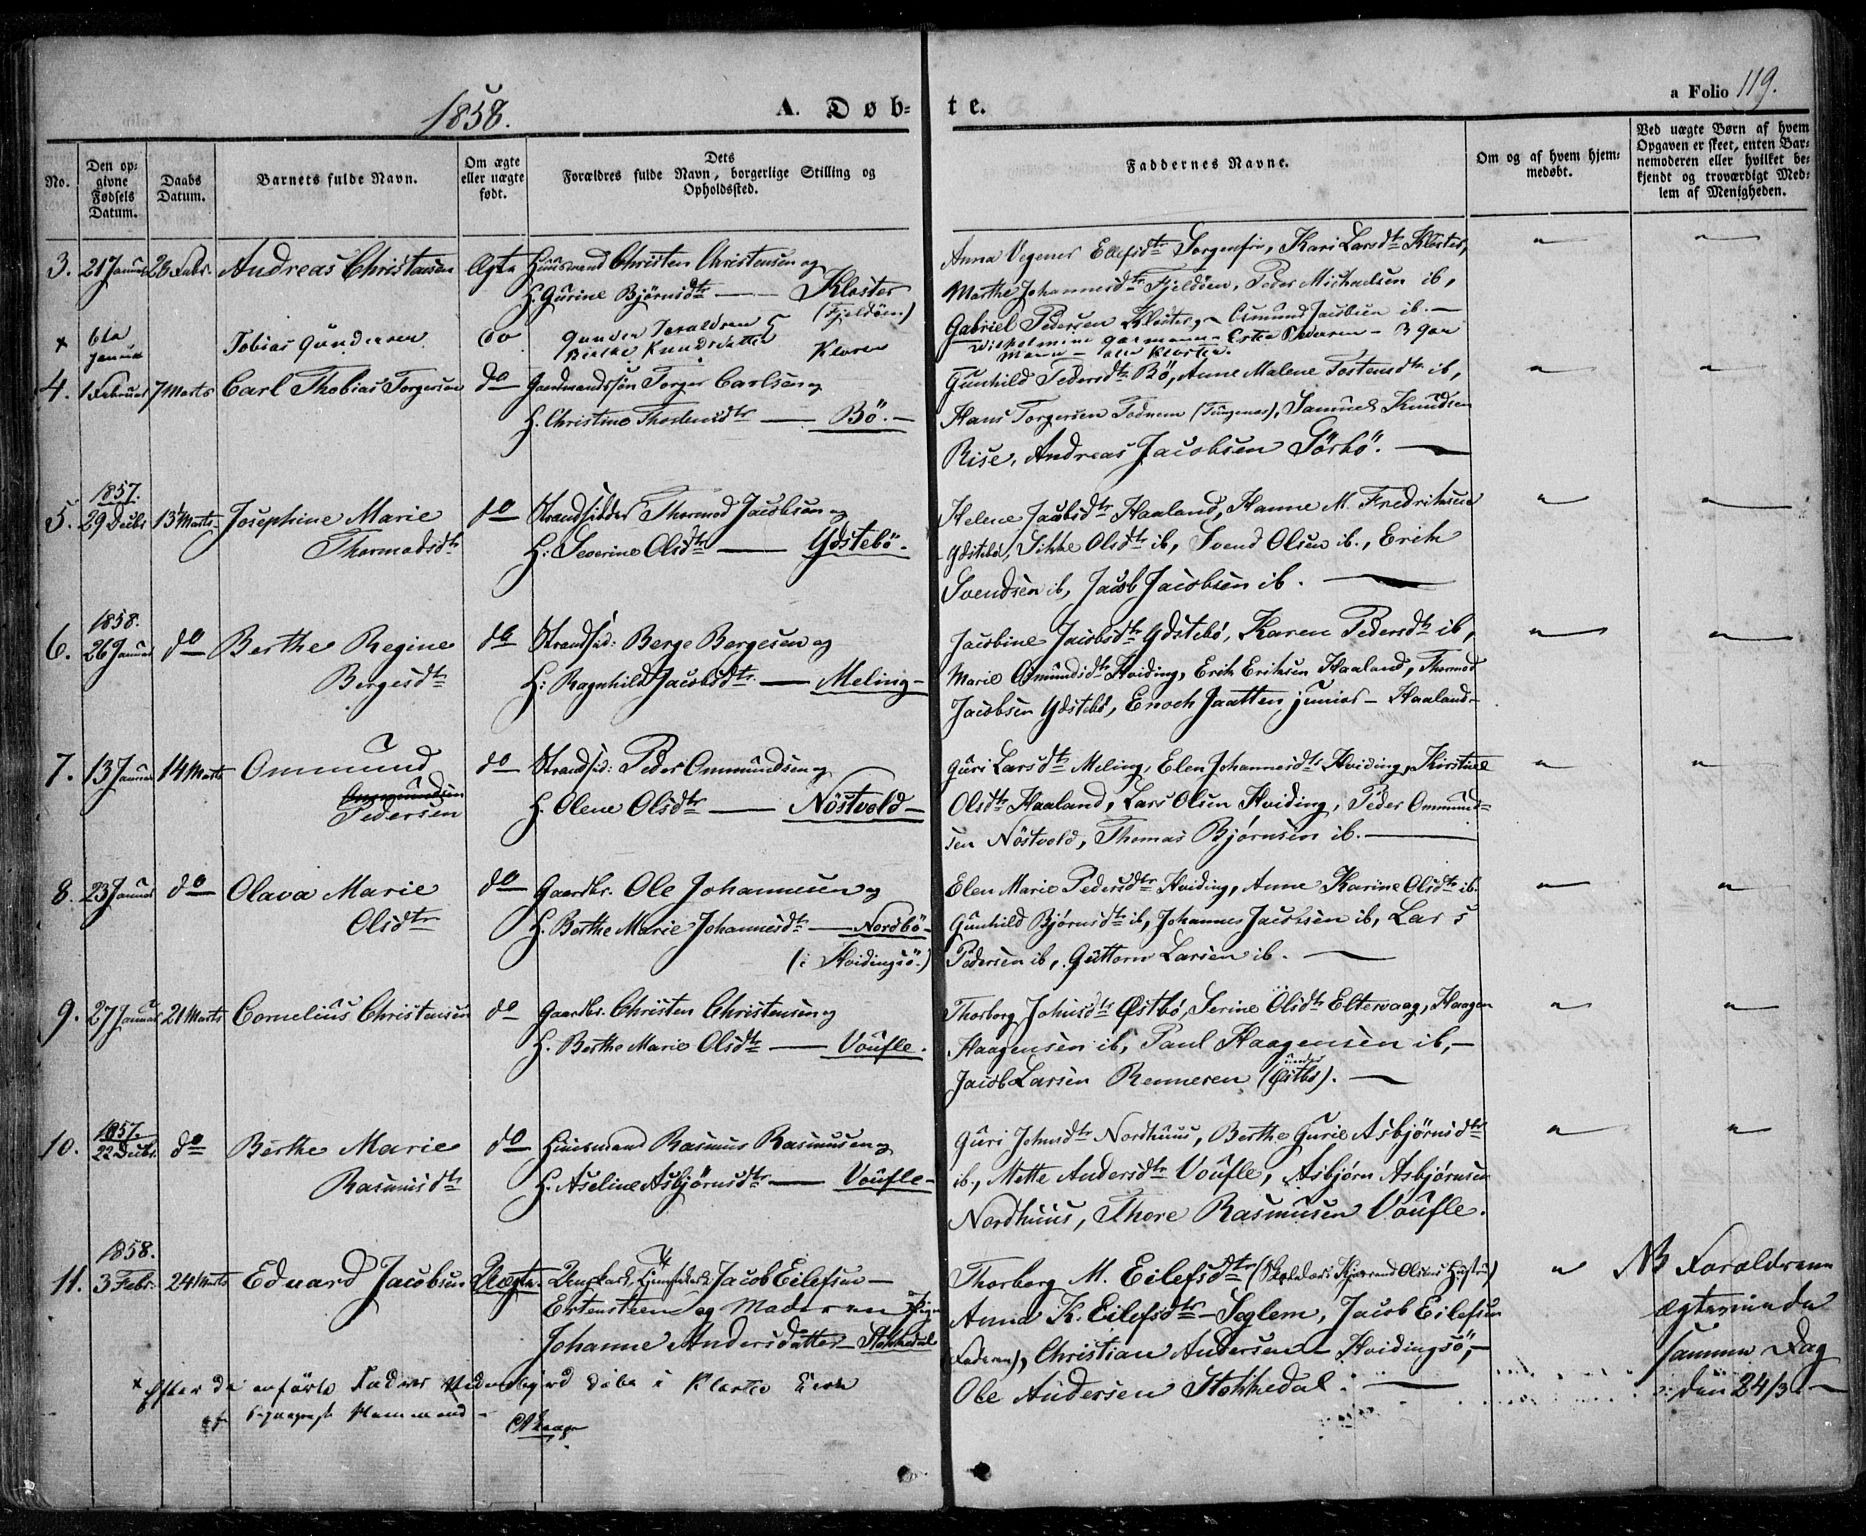 1858.
A. Døbte.
a Folio 119.
No.
Den opgivne Fødsels Datum.
Daabs Datum.
Barnets fulde Navn.
Om ægte eller uægte født.
Dets Forældres fulde Navn, borgerlige Stilling og Opholdssted.
Faddernes Navne.
Om og af hvem hjemmedøbt.
Ved uægte Børn af hvem Opgaven er skeet, enten Barnemoderen eller hvilket bekjendt og troværdigt Medlem af Menigheden.
3. 21 Januar 26 Febr. Andreas Christensen Ægte Huusmand Christen Christensen og
H. Gurine Bjørnsdtr — Kloster
(Fjeldöen)
Anna Vegener Ellefsdtr Sorgenfri, Kari Larsdtr Kloster,
Marthe Johannesdtr Fjeldöen, Peder Michaelsen ib,
Gabriel Pedersen Kloster, Osmund Jacobsen ib. —
x 6te Januar Tobias Gundersen do Gunder
Knudsdatter
4. 1 Februar 7 Marts Carl Thobias Torgersen do Gaardmandssön Torger Carlsen og
H. Christine Thorlensdtr — Bö. —
Gunhild Pedersdtr Bö, Anne Malene Tostensdtr ib,
Hans Torgersen Todnem (Tungenes), Samuel Knudsen
Rise, Andreas Jacobsen Sörbö. —
1857.
5. 29 Decbr 13 Marts Josephine Marie
Thormodsdtr
do Strandsidder Thormod Jacobsen og
H: Severine Olsdtr — Ydstebö.
Helene Jacobsdtr Haaland, Hanne M. Fredriksen
Ydstebö, Sikke Olsdtr ib, Svend Olsen ib., Erik
Svendsen ib, Jacob Jacobsen ib. —
1858.
6. 26 Januar do Berthe Regine
Bergesdtr
do Strandsid: Berge Bergesen og
H: Ragnhild Jacobsdtr. — Meling —
Jacobine Jacobsdtr Ydstebö, Karen Pedersdtr ib,
Marie Osmundsdtr Hviding, Erik Eriksen Haaland, Thormod
Jacobsen Ydstebö, Enoch Jaatten junior — Haaland —
7. 13 Januar 14 Marts Ommund
Ommundsen
Pedersen
do Strandsid: Peder Ommundsen og
H. Olene Olsdtr — Nöstvold —
Guri Larsdtr Meling, Elen Johannesdtr Hviding, Kirstine
Olsdtr Haaland, Lars Olsen Hviding, Peder Ommund=
sen Nöstvold, Thomas Bjørnsen ib. —
8. 23 Januar do Olava Marie
Olsdtr
do Gaardbr. Ole Johannesen og
H. Berthe Marie Johannesdtr — Nordbö —
(i Hvidingsö.)
Elen Marie Pedersdtr Hviding, Anne Karine Olsdtr ib.
Gunhild Bjørnsdtr ib, Johannes Jacobsen ib, Lars
Pedersen ib, Guttorm Larsen ib. —
9. 27 Januar 21 Marts Cornelius Christensen do Gaardbr. Christen Christensen og
H. Berthe Marie Olsdtr — Voufle.
Thorborg Johnsdtr Østbö, Serine Olsdtr Eltervaag, Haagen
Haagensen ib, Paul Haagensen ib, —
Jacob Larsen Renneren (under Østbö). —
1857.
10. 22 Decbr. do Berthe Marie
Rasmusdtr
do Huusmand Rasmus Rasmusen og
H. Aseline Asbjörnsdtr — Voufle —
Guri Johnsdtr Nordhuus, Berthe Gurie Asbjørnsdtr
ib, Mette Andersdtr Voufle, Asbjørn Asbjørnsen
Nordhuus, Thore Rasmusen Voufle.
1858.
11. 3 Febr. 24 Marts Eduard Jacobsen Uægte Ungkarl, Jacob Eilefsen —
Ertensteen og Moderen Pige
Johanne Andersdatter Stokkedal
Thorborg M. Eilefsdtr (Olsens Hustru)
Anna K. Eilefsdtr — Seglem, Jacob Eilefsen
(Faderen), Christian Andersen — Hvidingsö, —
Ole Andersen Stokkedal. —
NB Forældrene
ægteviede
samme Dag
den 24/3. —
x Efter de anförte Fadres Vidnesbyrd döbt i Kloster Kirke
af